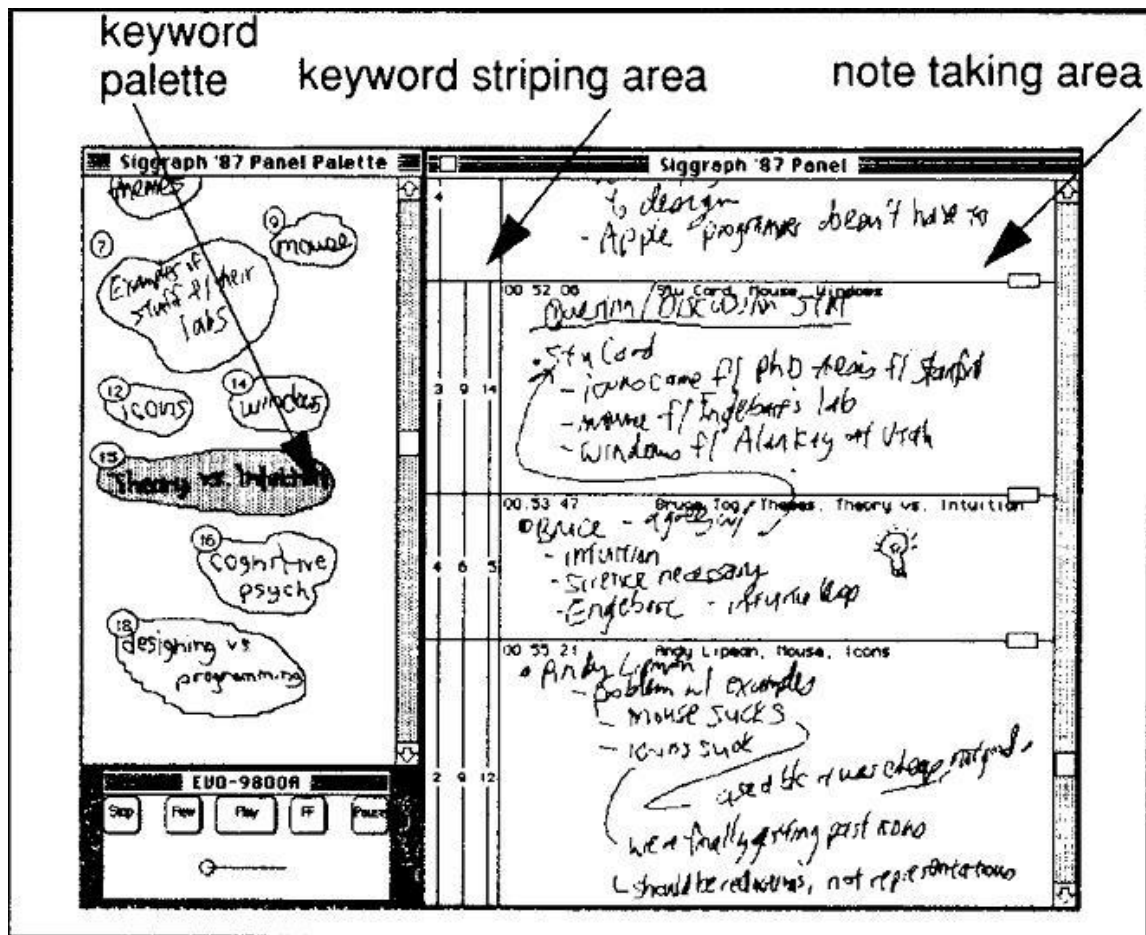 keyword
palette
keyword striping area
note taking area
Siggraph '87 Panel Palette
themes
9
mouse
7
Examples of
stuff f/ their
labs
12
icons
14
windows
15
Theory vs. Intuition
16
cognitive
psych
18
designing vs
programming
EVO-9800A
Stop
Rew
Play
FF
Pause
Siggraph '87 Panel
4
to design
- Apple programmer doesn't have to
00 52 06
Stu Card, Mouse, Windows
3 9 14
• Stu Card
- icons came f/ PhD thesis f/ Stanford
- mouse f/ Englebart's lab
- windows f/ Alan Kay at Utah
00.53 47
Bruce Tog, Themes, Theory vs. Intuition
4 6 5
Bruce - agreeing
- intuition
- Science necessary
- Englebart - intuitive leap
00 55 21
Andy Lipman, Mouse, Icons
2 9 12
• Andy Lipman
- problem w/ examples
- mouse sucks
- icons suck
used b/c it was cheap
we're finally getting past icons
should be reductions, not representations